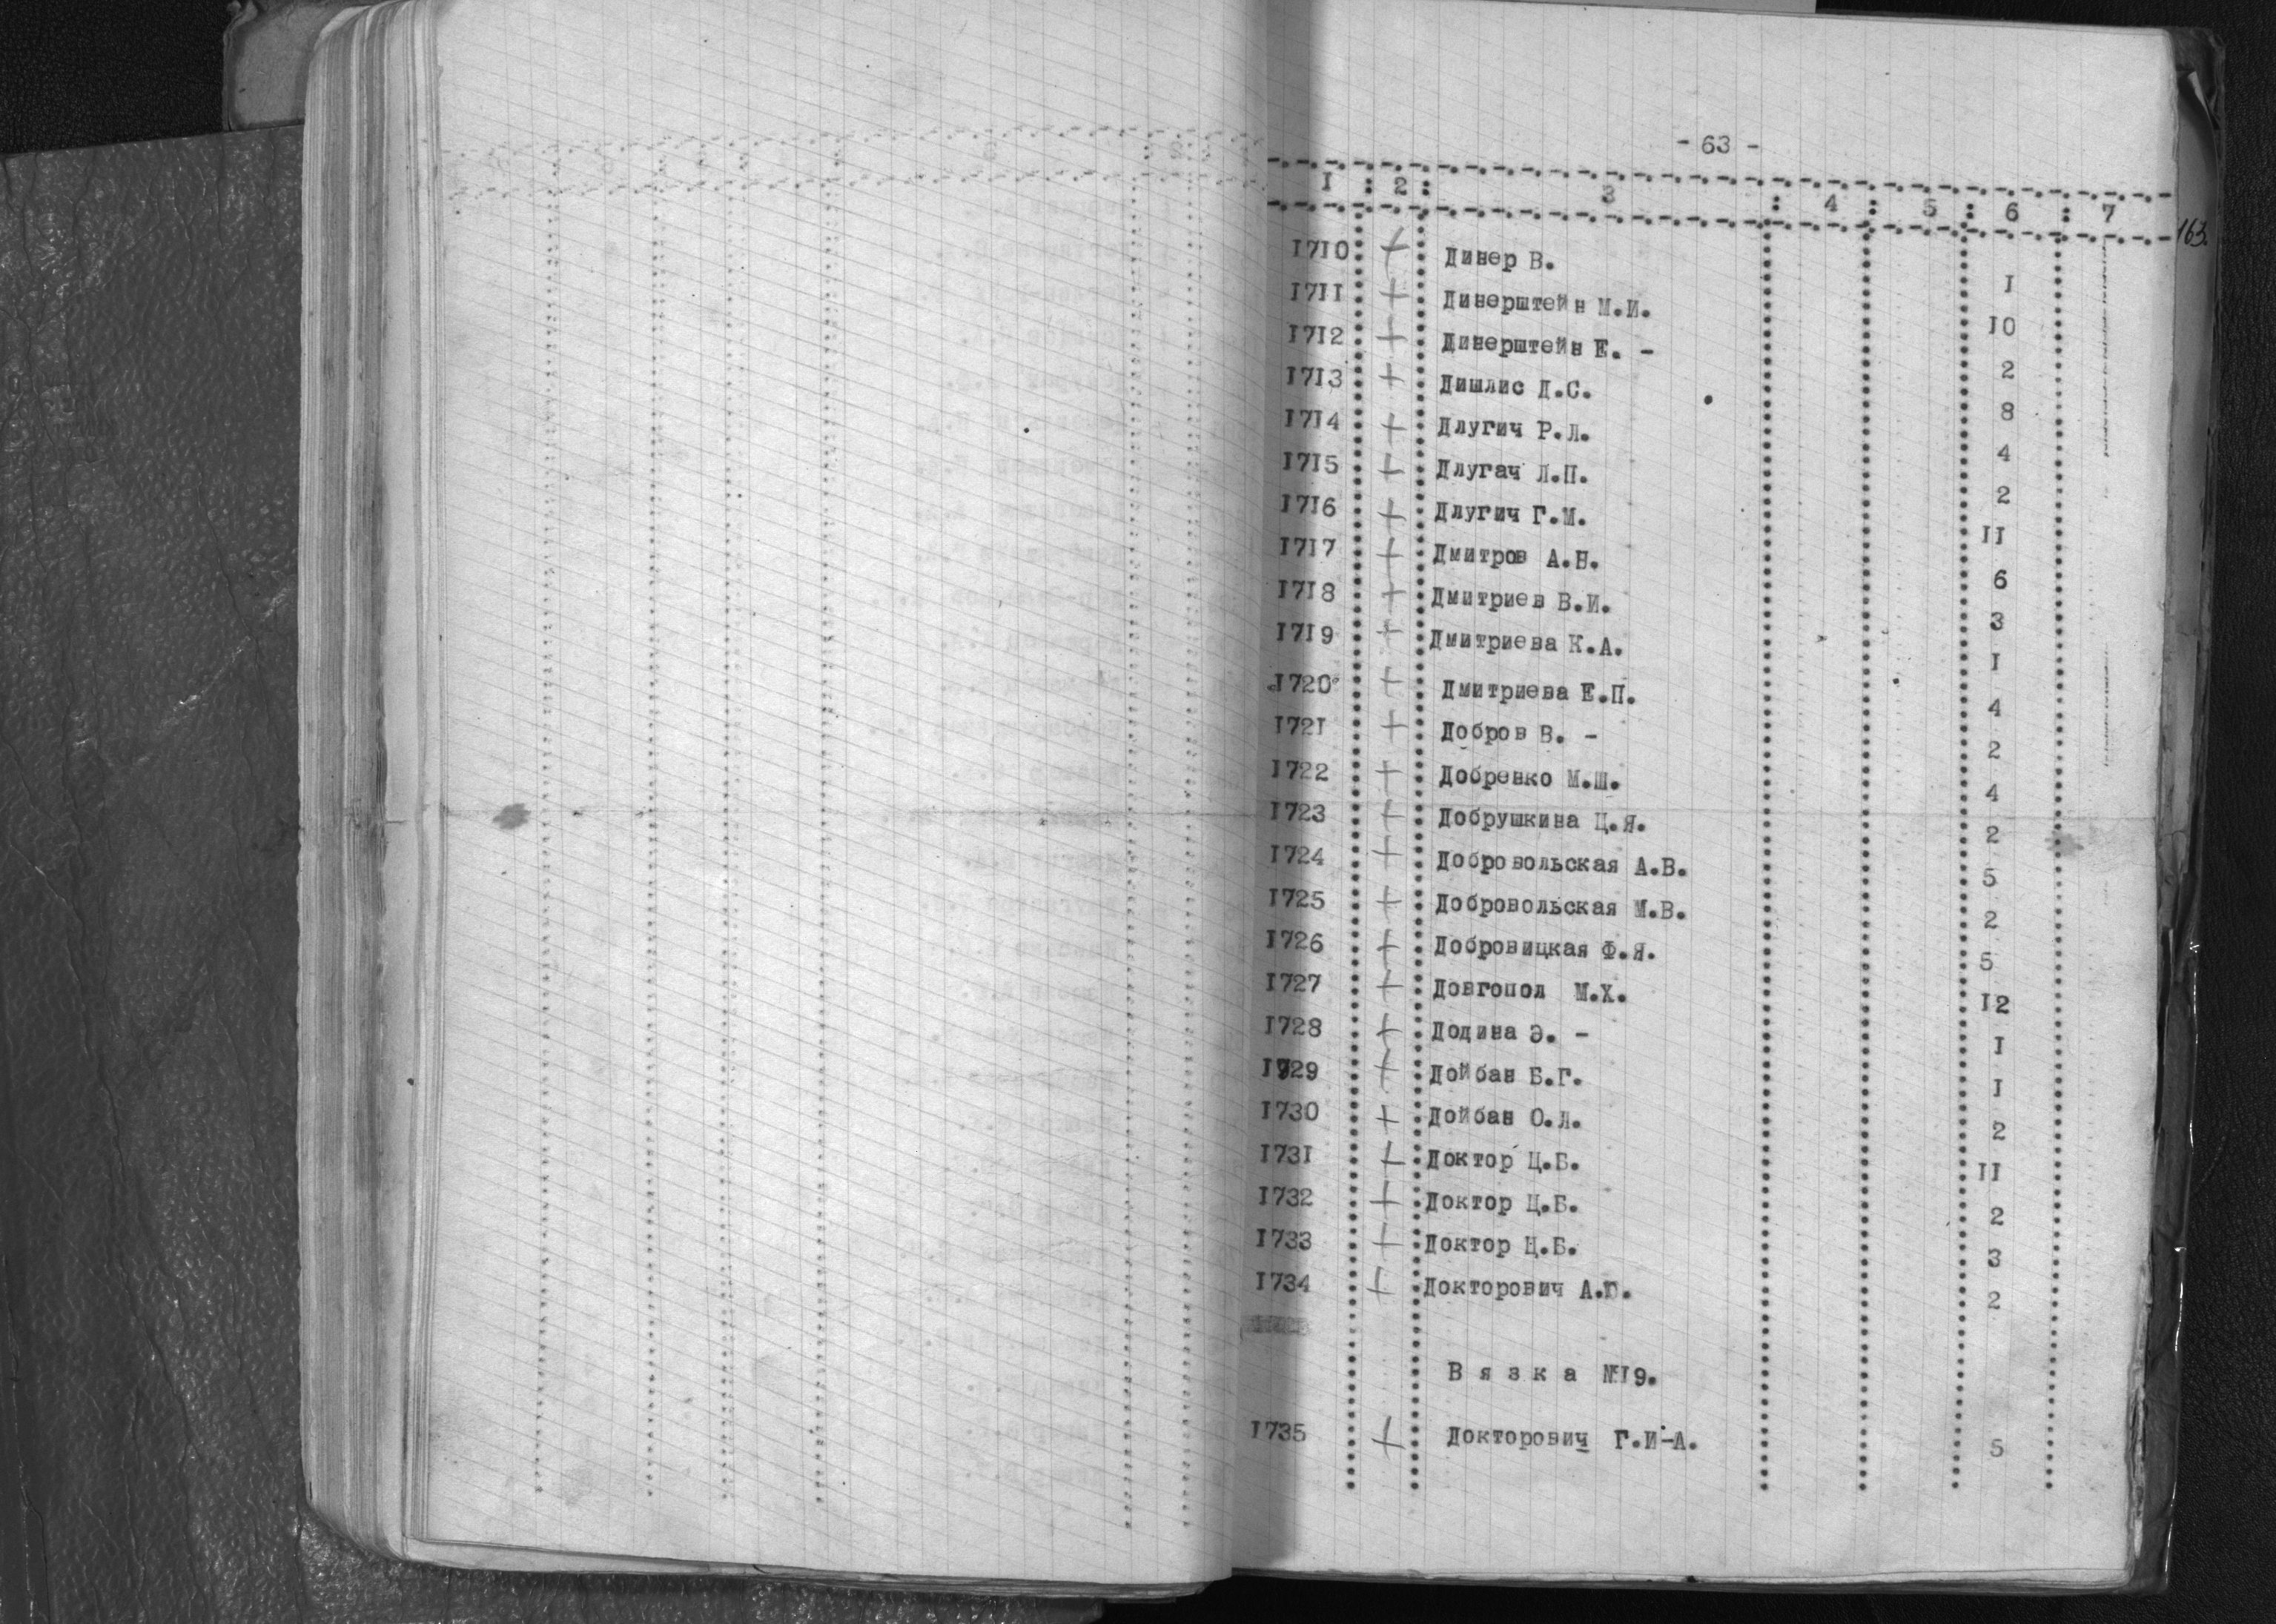 - 63 -
1 : 2 : 3 : 4 : 5 : 6 : 7
163.
1710 + Динер В. 1
1711 + Динерштейн М.И. 10
1712 + Динерштейн Е. - 2
1713 + Дишлис Д.С. 8
1714 + Длугич Р.Л. 4
1715 + Длугач Л.П. 2
1716 + Длугич Г.М. 11
1717 + Дмитров А.Н. 6
1718 + Дмитриев В.И. 3
1719 + Дмитриева К.А. 1
1720 + Дмитриева Е.П. 4
1721 + Добров В. - 2
1722 + Добренко М.Ш. 4
1723 + Добрушкина Ц.Я. 2
1724 + Добровольская А.В. 5
1725 + Добровольская М.В. 2
1726 + Добровицкая Ф.Я. 5
1727 + Довгопол М.Х. 12
1728 + Додина Э. - 1
1729 + Дойбан Б.Г. 1
1730 + Дойбан О.Л. 2
1731 + Доктор Ц.Б. 11
1732 + Доктор Ц.Б. 2
1733 + Доктор Ц.Б. 3
1734 + Докторович А.Ю. 2
Вязка №19.
1735 + Докторович Г.И-А. 5